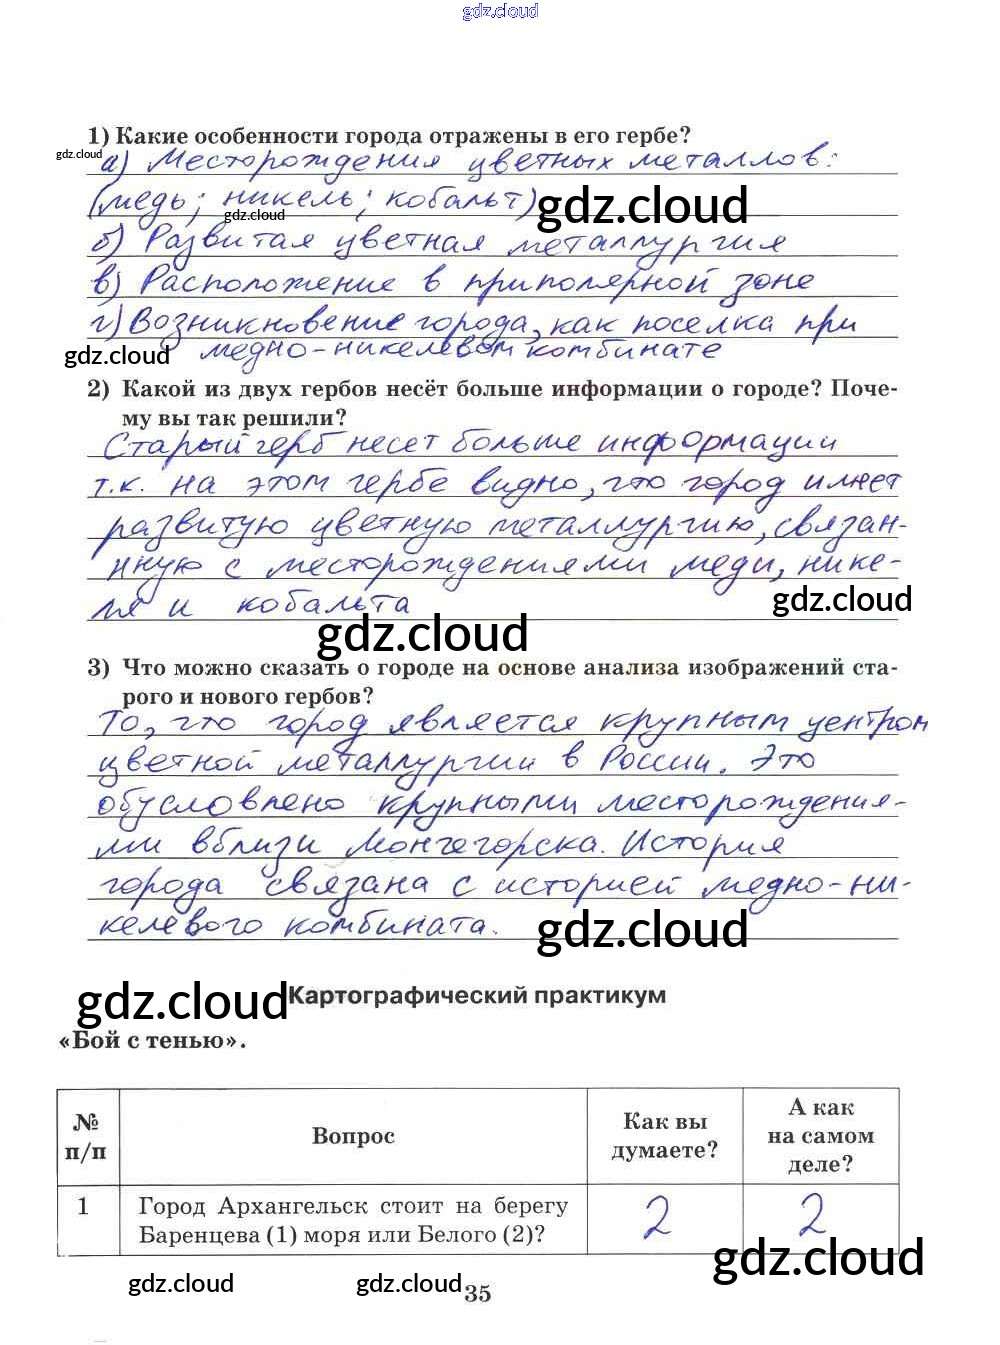 gdz.cloud
1) Какие особенности города отражены в его гербе?
gdz.cloud
а) Месторождения цветных металлов:
(медь; никель; кобальт)
gdz.cloud
gdz.cloud
б) Развитая цветная металлургия
в) Расположение в приполярной зоне
г) Возникновение города, как поселка при
gdz.cloud
медно-никелевом комбинате
2) Какой из двух гербов несёт больше информации о городе? Поче-
му вы так решили?
Старый герб несет больше информации
т.к. на этом гербе видно, что город имеет
развитую цветную металлургию, связан-
нную с месторождениями меди, нике-
ля и кобальта
gdz.cloud
gdz.cloud
3) Что можно сказать о городе на основе анализа изображений ста-
рого и нового гербов?
То, что город является крупным центром
цветной металлургии в России. Это
обусловлено крупными месторождения-
ми вблизи Мончегорска. История
города связана с историей медно-ни-
келевого комбината.
gdz.cloud
gdz.cloud
Картографический практикум
«Бой с тенью».
№ п/п
Вопрос
Как вы думаете?
А как на самом деле?
1
Город Архангельск стоит на берегу
Баренцева (1) моря или Белого (2)?
2
2
gdz.cloud
gdz.cloud
gdz.cloud
35